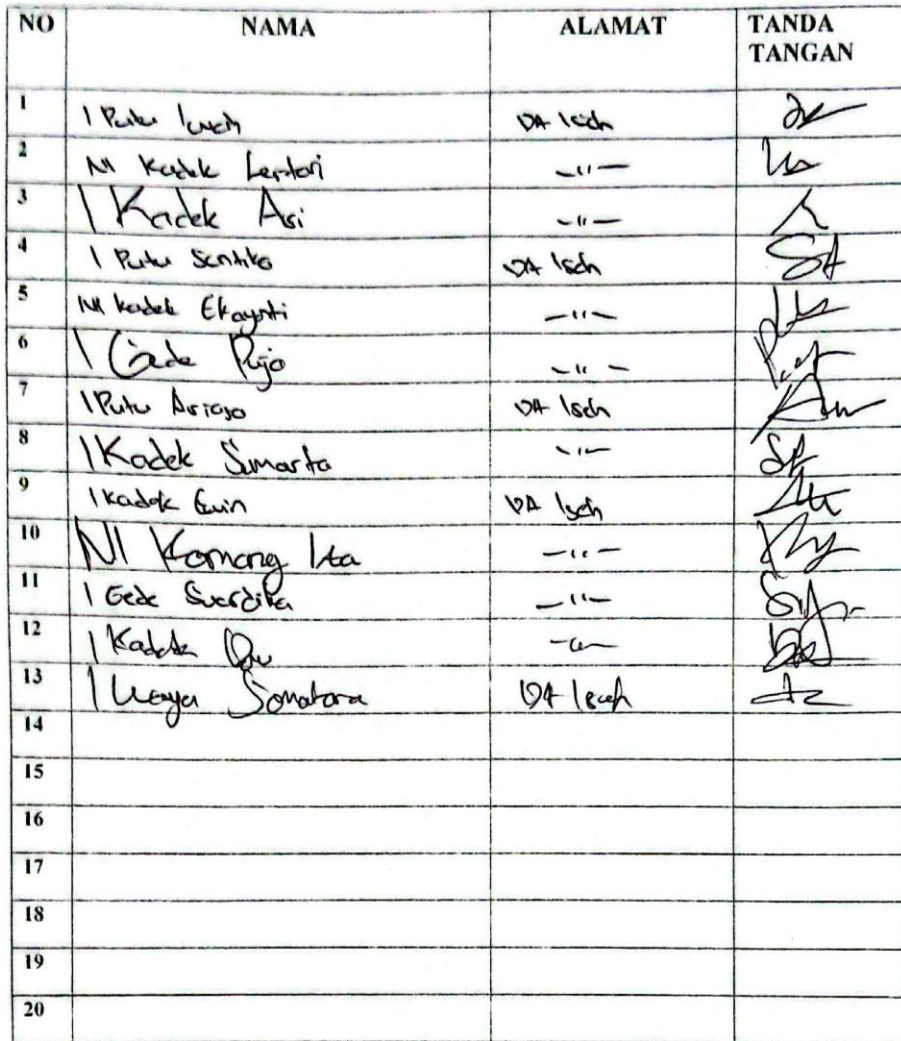 NO NAMA ALAMAT TANDA TANGAN
1 I Putu DA Iseh
2 NI Kadek Lestari -"-
3 I Kadek Asi -"-
4 I Putu Santika DA Iseh
5 NI Kadek Ekayanti -"-
6 I Gede Pujo -"-
7 I Putu DA Iseh
8 I Kadek Sumarta -"-
9 I Kadek DA Iseh
10 NI Komang Ita -"-
11 I Gede Suardika -"-
12 I Kadek -"-
13 I DA Iseh
14
15
16
17
18
19
20